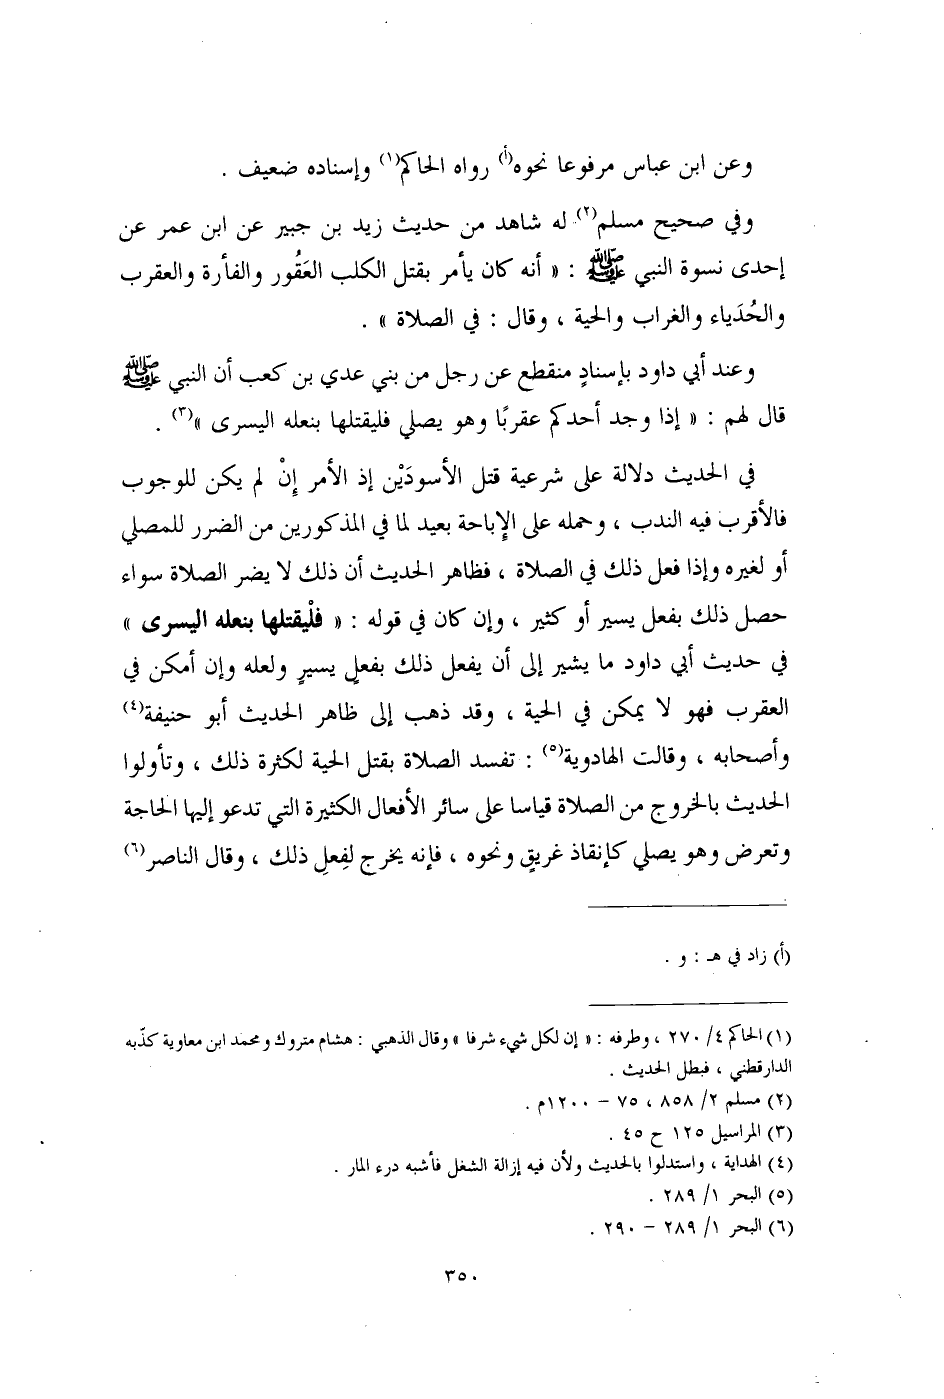 وعن ابن عباس مرفوعا نحوه(أ) رواه الحاكم(١) وإسناده ضعيف .
وفي صحيح مسلم(٢) له شاهد من حديث زيد بن جبير عن ابن عمر عن
إحدى نسوة النبي ﷺ : « أنه كان يأمر بقتل الكلب العَقُور والفأرة والعقرب
والحُدَياء والغراب والحية ، وقال : في الصلاة » .
وعند أبي داود بإسنادٍ منقطع عن رجل من بني عدي بن كعب أن النبي ﷺ
قال لهم : « إذا وجد أحدكم عقربًا وهو يصلي فليقتلها بنعله اليسرى »(٣) .
في الحديث دلالة على شرعية قتل الأسودَيْن إذ الأمر إنْ لم يكن للوجوب
فالأقرب فيه الندب ، وحمله على الإباحة بعيد لما في المذكورين من الضرر للمصلي
أو لغيره وإذا فعل ذلك في الصلاة ، فظاهر الحديث أن ذلك لا يضر الصلاة سواء
حصل ذلك بفعل يسير أو كثير ، وإن كان في قوله : « فلْيقتلها بنعله اليسرى »
في حديث أبي داود ما يشير إلى أن يفعل ذلك بفعلٍ يسيرٍ ولعله وإن أمكن في
العقرب فهو لا يمكن في الحية ، وقد ذهب إلى ظاهر الحديث أبو حنيفة(٤)
وأصحابه ، وقالت الهادوية(٥) : تفسد الصلاة بقتل الحية لكثرة ذلك ، وتأولوا
الحديث بالخروج من الصلاة قياسا على سائر الأفعال الكثيرة التي تدعو إليها الحاجة
وتعرض وهو يصلي كإنقاذ غريقٍ ونحوه ، فإنه يخرج لفِعلِ ذلك ، وقال الناصر(٦)
(أ) زاد في هـ : و .
(١) الحاكم ٤/ ٢٧٠ ، وطرفه : « إن لكل شيء شرفا » وقال الذهبي : هشام متروك ومحمد ابن معاوية كذّبه
الدارقطني ، فبطل الحديث .
(٢) مسلم ٢/ ٨٥٨ ، ٧٥ – ١٢٠٠م .
(٣) المراسيل ١٢٥ ح ٤٥ .
(٤) الهداية ، واستدلوا بالحديث ولأن فيه إزالة الشغل فأشبه درء المار .
(٥) البحر ١/ ٢٨٩ .
(٦) البحر ١/ ٢٨٩ – ٢٩٠ .
٣٥٠